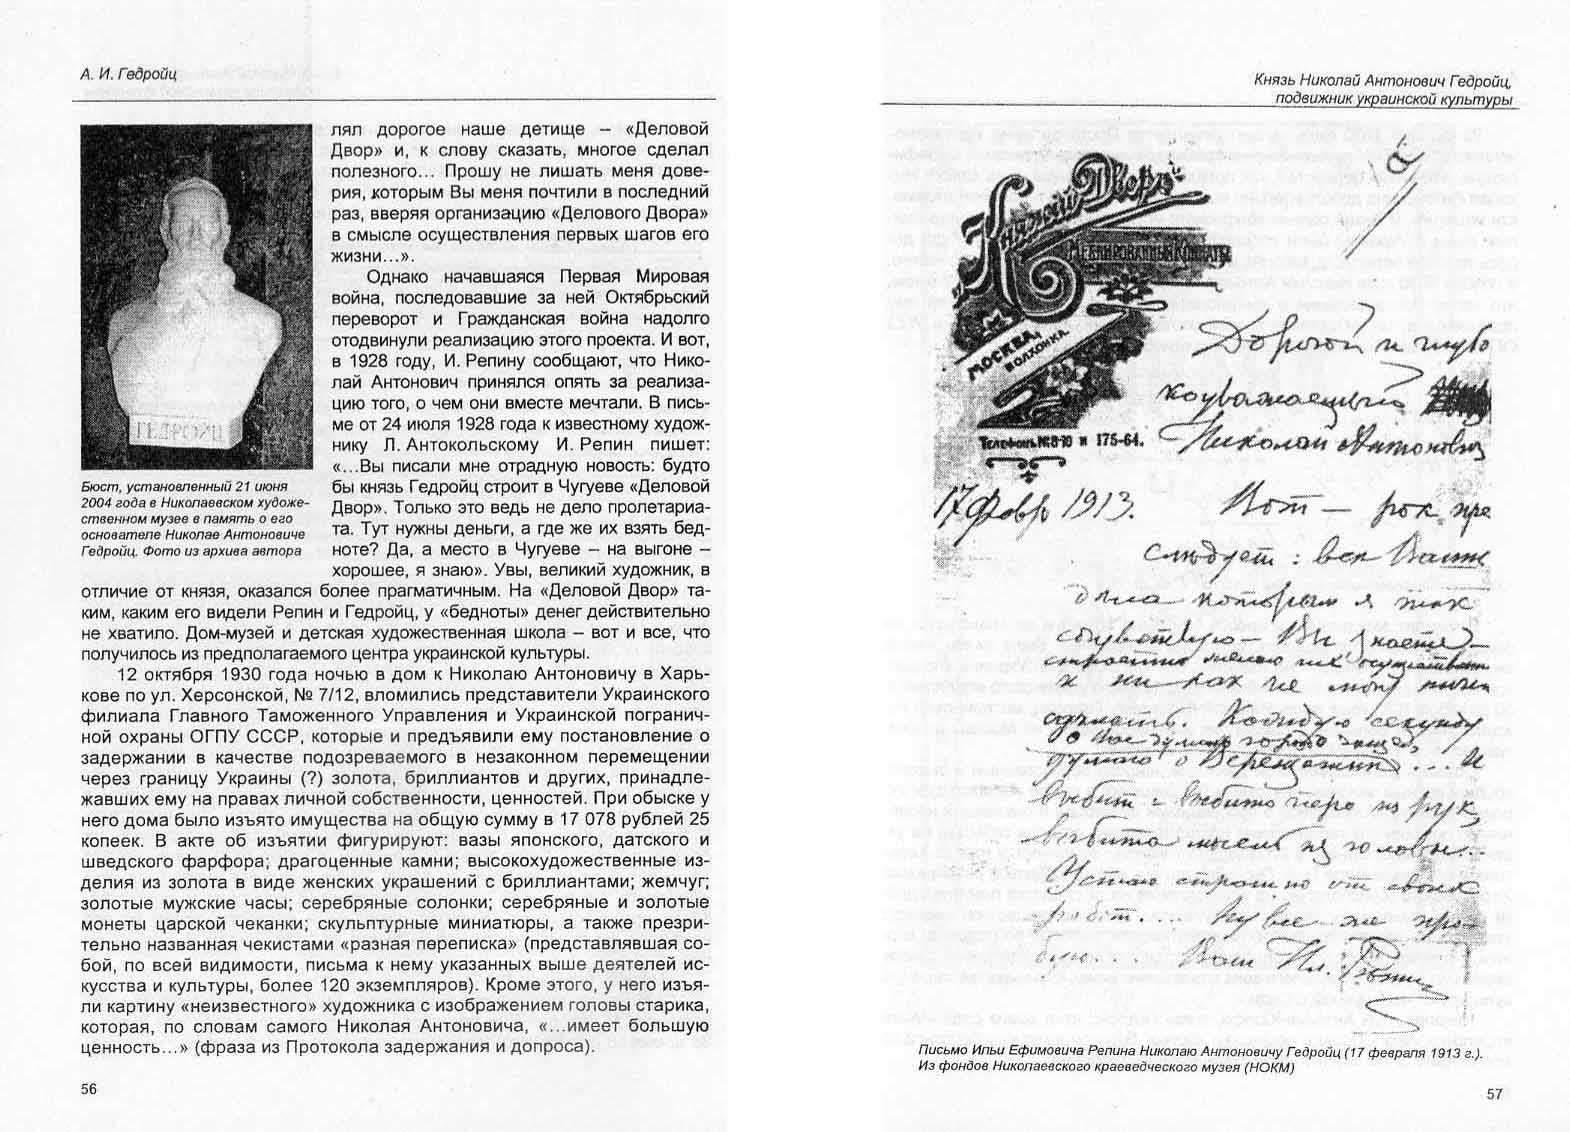 А. И. Гедройц
лял дорогое наше детище – «Деловой
Двор» и, к слову сказать, многое сделал
полезного… Прошу не лишать меня дове-
рия, которым Вы меня почтили в последний
раз, вверяя организацию «Делового Двора»
в смысле осуществления первых шагов его
жизни…».
Однако начавшаяся Первая Мировая
война, последовавшие за ней Октябрьский
переворот и Гражданская война надолго
отодвинули реализацию этого проекта. И вот,
в 1928 году, И. Репину сообщают, что Нико-
лай Антонович принялся опять за реализа-
цию того, о чем они вместе мечтали. В пись-
ме от 24 июля 1928 года к известному худож-
нику Л. Антокольскому И. Репин пишет:
«…Вы писали мне отрадную новость: будто
бы князь Гедройц строит в Чугуеве «Деловой
Двор». Только это ведь не дело пролетариа-
та. Тут нужны деньги, а где же их взять бед-
ноте? Да, а место в Чугуеве – на выгоне –
хорошее, я знаю». Увы, великий художник, в
ГЕДРОЙЦ
Бюст, установленный 21 июня
2004 года в Николаевском художе-
ственном музее в память о его
основателе Николае Антоновиче
Гедройц. Фото из архива автора
отличие от князя, оказался более прагматичным. На «Деловой Двор» та-
ким, каким его видели Репин и Гедройц, у «бедноты» денег действительно
не хватило. Дом-музей и детская художественная школа – вот и все, что
получилось из предполагаемого центра украинской культуры.
12 октября 1930 года ночью в дом к Николаю Антоновичу в Харь-
кове по ул. Херсонской, № 7/12, вломились представители Украинского
филиала Главного Таможенного Управления и Украинской погранич-
ной охраны ОГПУ СССР, которые и предъявили ему постановление о
задержании в качестве подозреваемого в незаконном перемещении
через границу Украины (?) золота, бриллиантов и других, принадле-
жавших ему на правах личной собственности, ценностей. При обыске у
него дома было изъято имущества на общую сумму в 17 078 рублей 25
копеек. В акте об изъятии фигурируют: вазы японского, датского и
шведского фарфора; драгоценные камни; высокохудожественные из-
делия из золота в виде женских украшений с бриллиантами; жемчуг;
золотые мужские часы; серебряные солонки; серебряные и золотые
монеты царской чеканки; скульптурные миниатюры, а также презри-
тельно названная чекистами «разная переписка» (представлявшая со-
бой, по всей видимости, письма к нему указанных выше деятелей ис-
кусства и культуры, более 120 экземпляров). Кроме этого, у него изъя-
ли картину «неизвестного» художника с изображением головы старика,
которая, по словам самого Николая Антоновича, «…имеет большую
ценность…» (фраза из Протокола задержания и допроса).
56
Князь Николай Антонович Гедройц,
подвижник украинской культуры
Княжий Дворъ
Меблированныя Комнаты
Москва,
Волхонка.
Телефонъ № 8-10 и 175-64.
Дорогой и глубо
коуважаемый
Николай Антонович
17 февр 1913. Вот – рок пре
следует: все Ваши
дела которым я так
сочувствую – Вы знаете –
страстно желаю их осуществить
и никак не могу ничего
сделать. Каждую секунду
думаю о Верещагине... И
выбит и выбито перо из рук,
выбита мысль из головы...
Устаю страшно от своих
работ... Ну все же про-
бую... Ваш Ил. Репин
Письмо Ильи Ефимовича Репина Николаю Антоновичу Гедройц (17 февраля 1913 г.).
Из фондов Николаевского краеведческого музея (НОКМ)
57